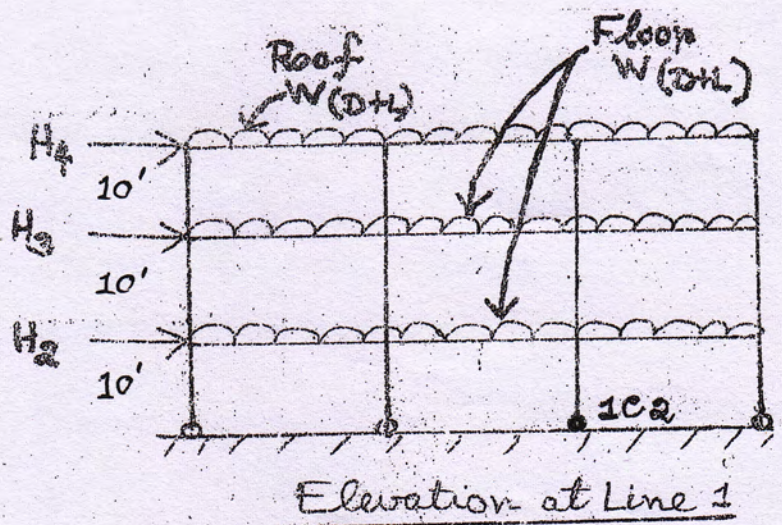 Roof
W(D+L)
Floor
W(D+L)
H4
10'
H3
10'
H2
10'
1C2
Elevation at Line 1